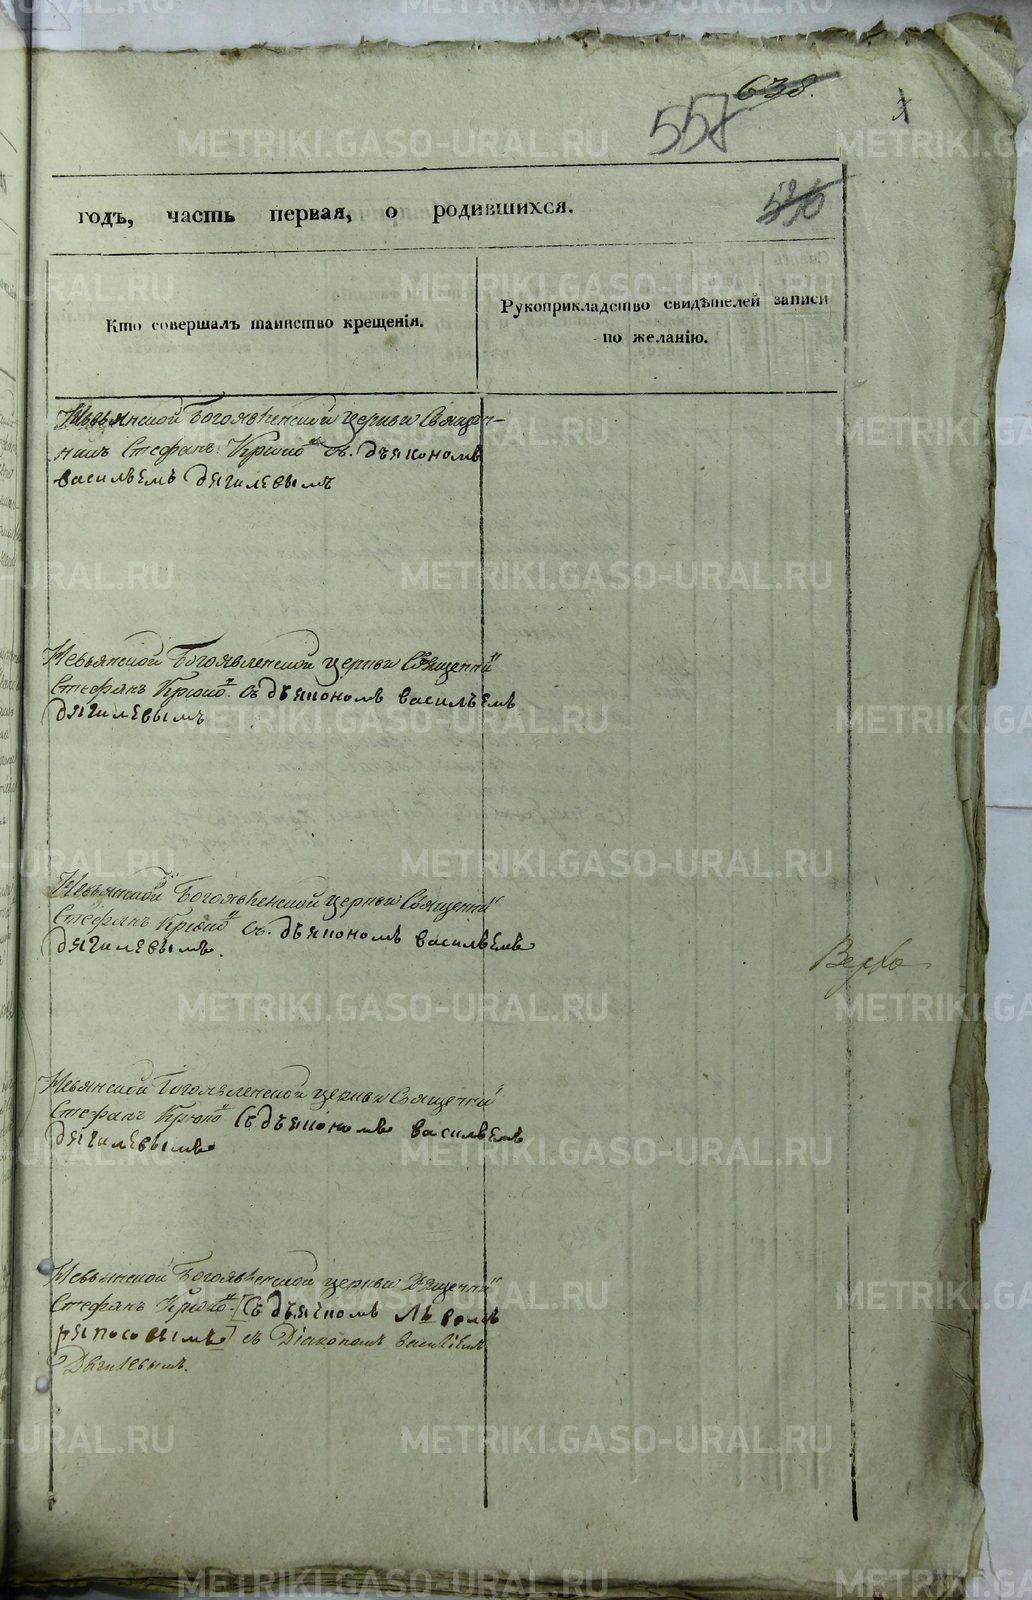 638.
557
годъ, часть первая, о родившихся.
Кто совершалъ таинство крещенія.
Рукоприкладство свидѣтелей записи
по желанію.
Невьянской Богоявленской церкви Священ-
никъ Стефанъ Крюко съ. дьякономъ
васильемъ дягилевымъ
Невьянской Богоявленской церкви Священни
Стефанъ Крюко съ дьякономъ васильемъ
дягилевымъ
Невьянской Богоявленской церкви Священни
Стефанъ Крюко съ. дьякономъ васильемъ
дягилевымъ.
Верхо
Невьянской Богоявленской церкви Священни
Стефанъ Крюко Съ дьякономъ васильемъ
дягилевымъ
Невьянской Богоявленской церкви Священни
Стефанъ Крюко [Съ дьячкомъ Львомъ
] съ Діакономъ Василіемъ
Дягилевымъ.
METRIKI.GASO-URAL.RU